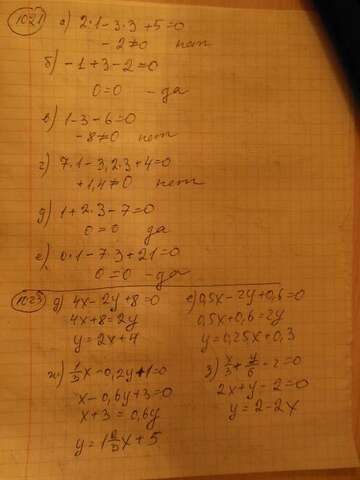 1021 а) 2·1-3·3+5=0
-2≠0 нет
б) -1+3-2=0
0=0 - да
в) 1-3-6=0
-8≠0 нет
г) 7·1-3,2·3+4=0
+1,4≠0 нет
д) 1+2·3-7=0
0=0 да
е) 0·1-7·3+21=0
0=0 - да
1023 д) 4x-2y+8=0
4x+8=2y
y=2x+4
е) 0,5x-2y+0,6=0
0,5x+0,6=2y
y=0,25x+0,3
ж) x-0,2y+1=0
x-0,6y+3=0
x+3=0,6y
y=1 x+5
з) x/3+y/6-2=0
2x+y-2=0
y=2-2x